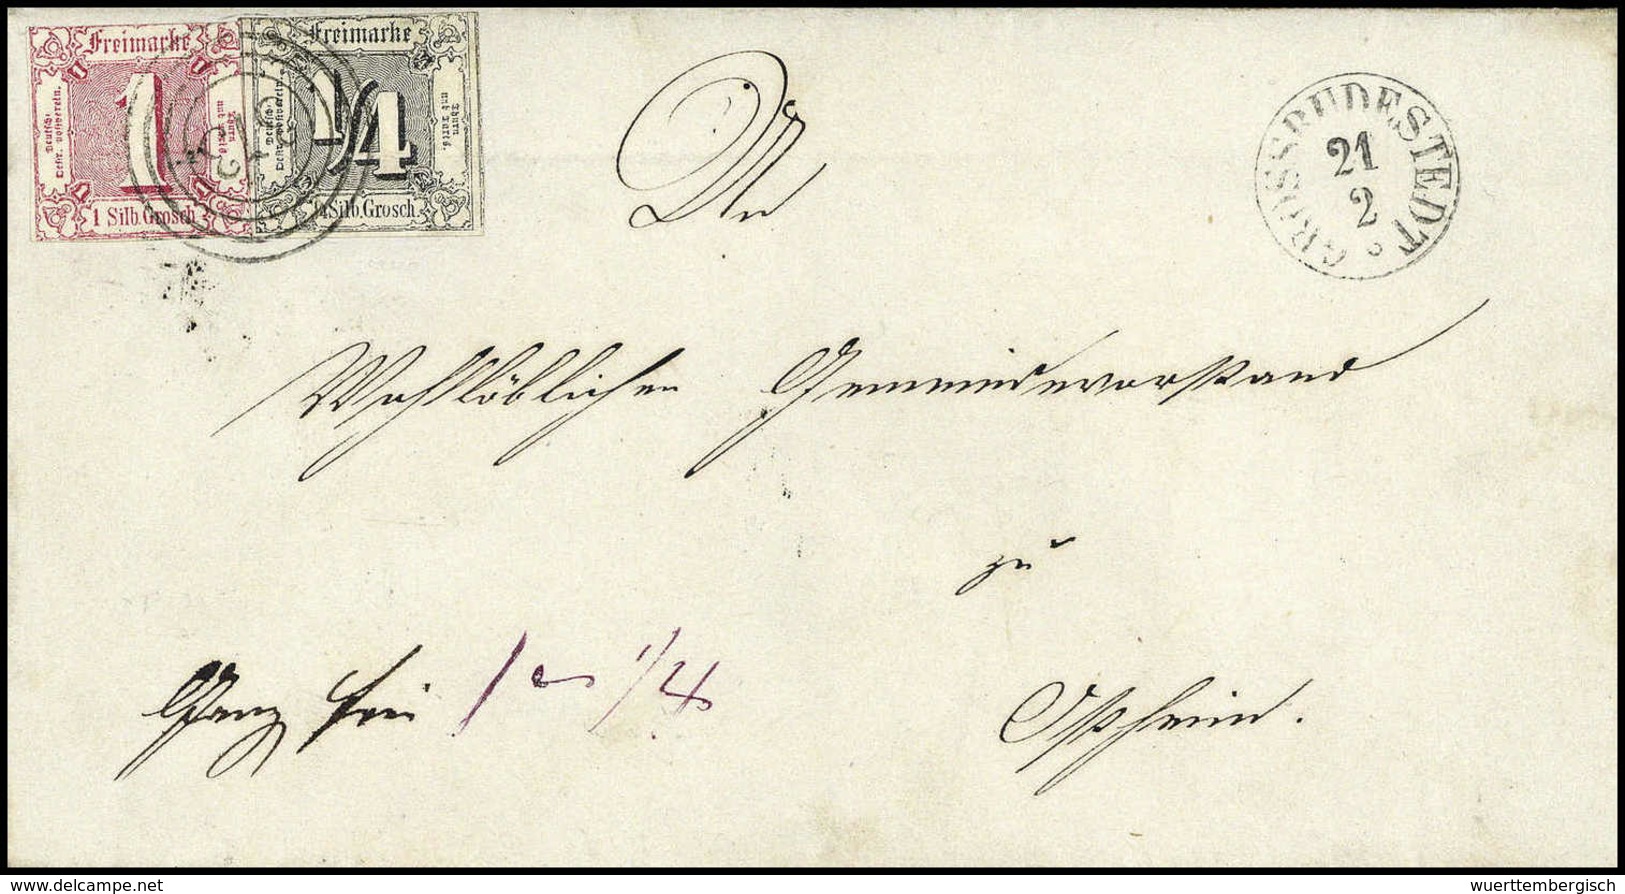 Freimarke
Deutsch-Oestr. Postverein.
Thurn und Taxis.
1
1 Silb. Grosch
Freimarke
Deutsch-Oestr. Postverein.
Thurn und Taxis.
1/4
1/4 Silb. Grosch.
313
GROSSRUDESTEDT
21
2
An
Wohllöblichen Gemeindevorstand
zu
Ganz frei 1 1/4
www.wuerttembergisch
www.delcampe.net